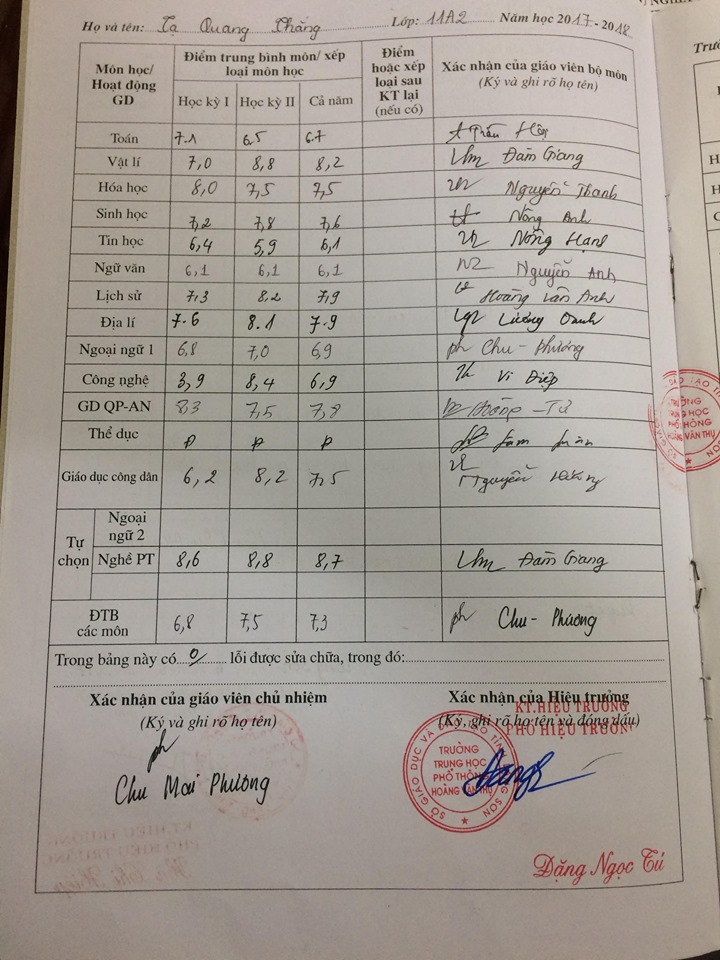 Họ và tên: Tạ Quang Thăng Lớp: 11A2 Năm học 2017-2018
Môn học/ Hoạt động GD
Điểm trung bình môn/ xếp loại môn học
Học kỳ I Học kỳ II Cả năm
Điểm hoặc xếp loại sau KT lại (nếu có)
Xác nhận của giáo viên bộ môn
(Ký và ghi rõ họ tên)
Toán 7.1 6.5 6.7 Trần
Vật lí 7,0 8,8 8,2 Đàm Giang
Hóa học 8,0 7,5 7,5 Nguyễn Thanh
Sinh học 7,2 7,8 7,6 Nông Anh
Tin học 6,4 5,9 6,1 Nông Hạnh
Ngữ văn 6,1 6,1 6,1 Nguyễn Anh
Lịch sử 7,3 8,2 7,9 Hoàng Vân Anh
Địa lí 7.6 8.1 7.9 Lương Oanh
Ngoại ngữ 1 6,8 7,0 6,9 Chu - Phương
Công nghệ 3,9 8,4 6,9 Vi Điệp
GD QP-AN 8,3 7,5 7,8
Thể dục Đ Đ Đ
Giáo dục công dân 6,2 8,2 7,5 Nguyễn
Tự chọn
Ngoại ngữ 2
Nghề PT 8,6 8,8 8,7 Đàm Giang
ĐTB các môn 6,8 7,5 7,3 Chu - Phương
Trong bảng này có 0 lỗi được sửa chữa, trong đó:
Xác nhận của giáo viên chủ nhiệm
(Ký và ghi rõ họ tên)
Chu Mai Phương
Xác nhận của Hiệu trưởng
KT.HIỆU TRƯỞNG
(Ký, ghi rõ họ tên và đóng dấu)
PHÓ HIỆU TRƯỞNG
SỞ GIÁO DỤC VÀ ĐÀO TẠO TỈNH LẠNG SƠN
TRƯỜNG
TRUNG HỌC
PHỔ THÔNG
HOÀNG VĂN THỤ
Đặng Ngọc Tú
TRƯỜNG
TRUNG HỌC
PHỔ THÔNG
HOÀNG VĂN THỤ